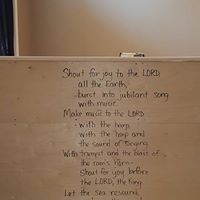 Shout for joy to the LORD
all the Earth,
-burst into jubilant song
with music
Make music to the LORD
-with the harp,
with the harp and
the sound of singing
With trumpet and the blast of
the ram's horn-
Shout for joy before
the LORD, the King.
Let the sea resound,